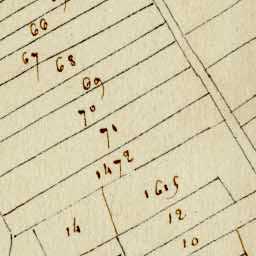 66
67 68
69
70
71
1472
1615
14
12
10